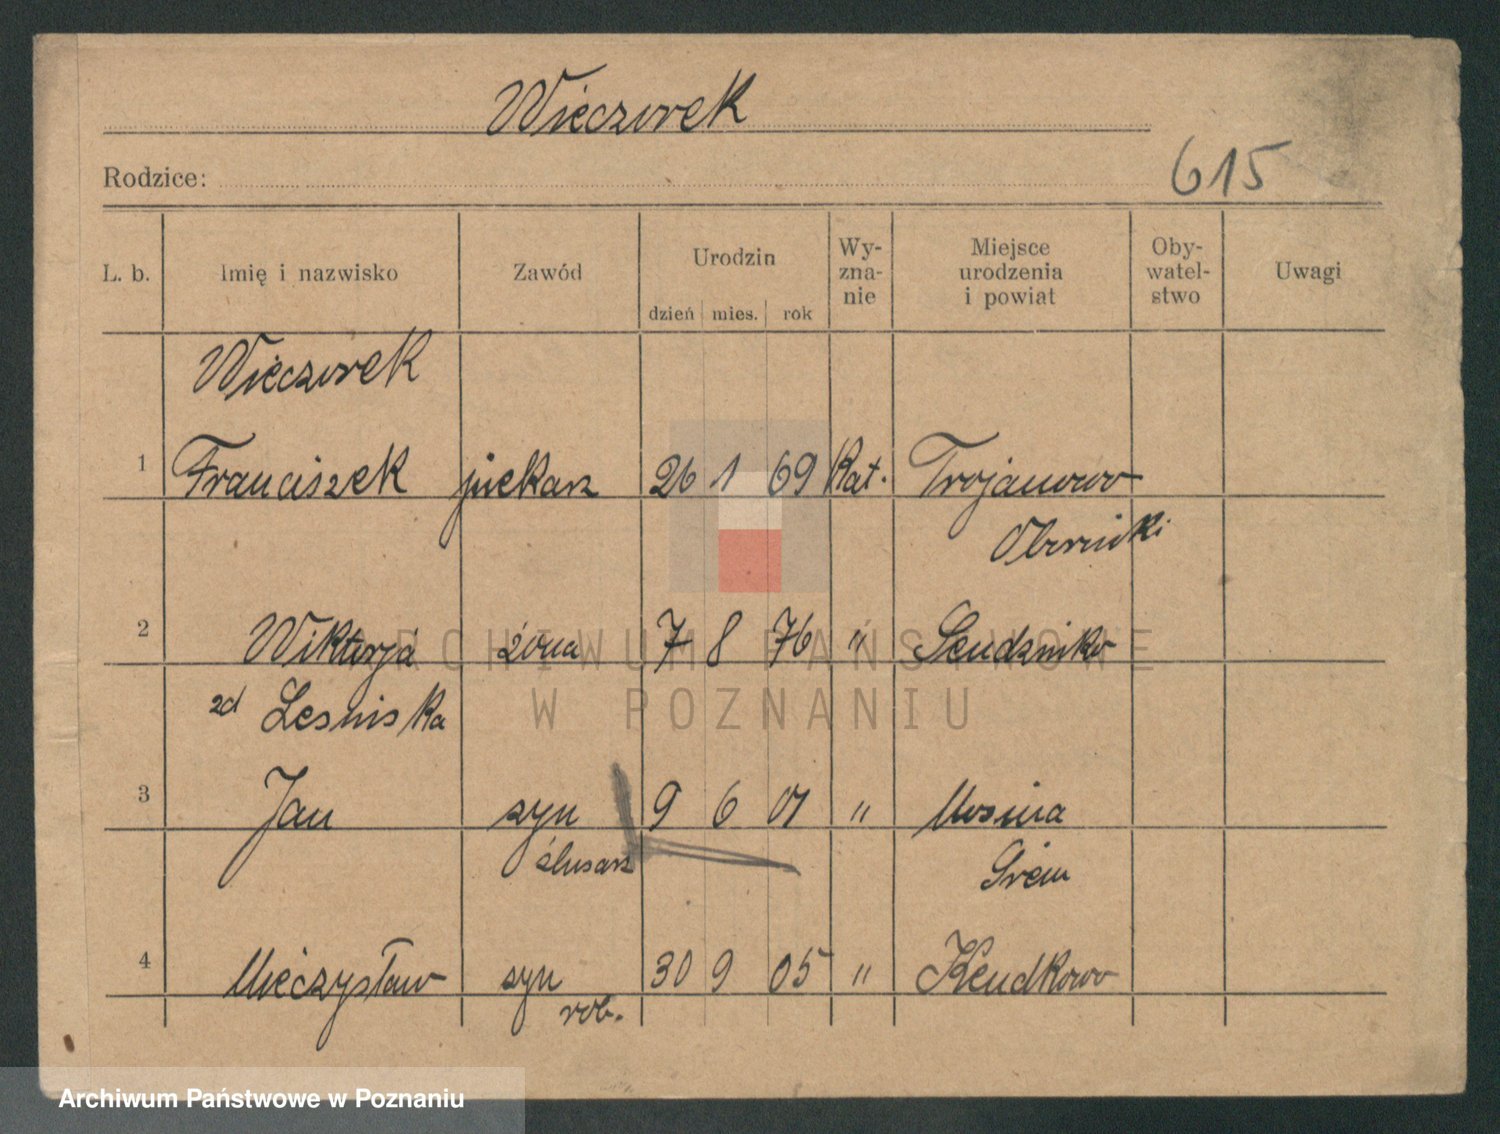 Wieczorek
Rodzice:
615
L. b. Imię i nazwisko Zawód Urodzin Wy-
zna-
nie Miejsce
urodzenia
i powiat Oby-
watel-
stwo Uwagi
dzień mies. rok
Wieczorek
1 Franciszek piekarz 26 1 69 Kat. Trojanowo
Oborniki
2 Wiktorja żona 7 8 76 "
zd Lesniska
3 Jan syn 9 6 01 " Mosina
ślusarz Śrem
4 Mieczysław syn 30 9 05 "
rob.
ARCHIWUM PAŃSTWOWE
W POZNANIU
Archiwum Państwowe w Poznaniu